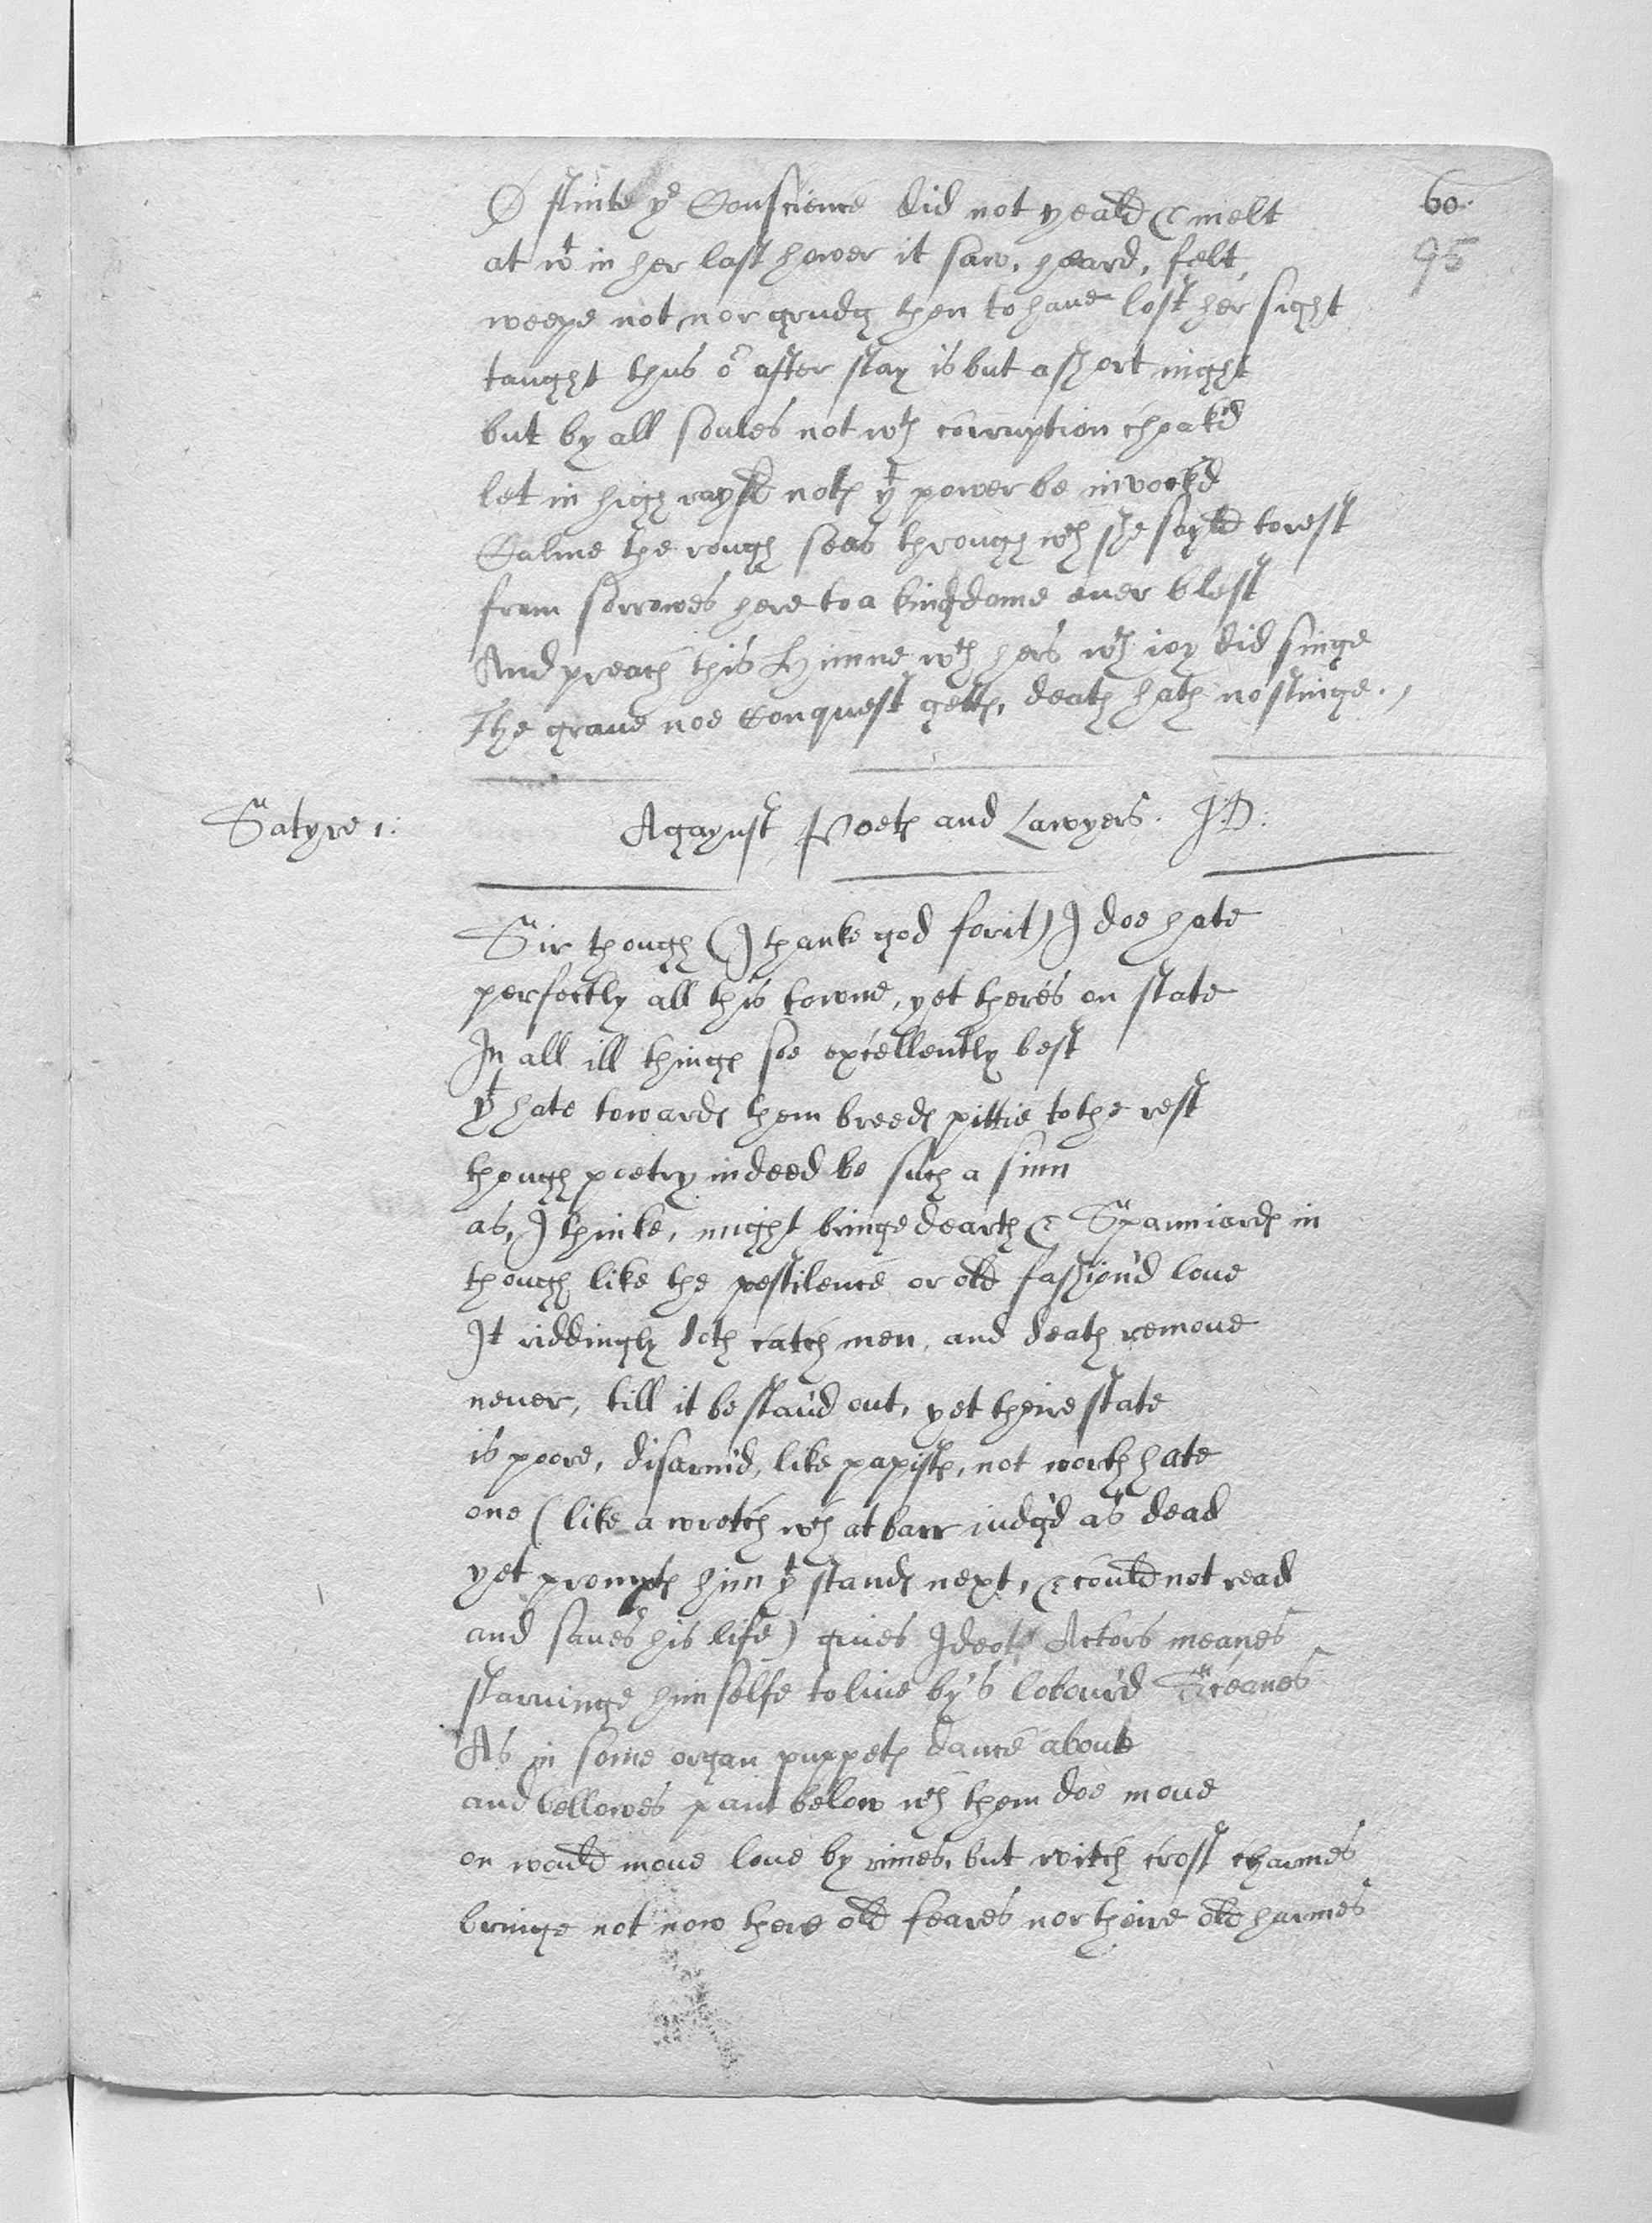 60.
95
O flinte yᵉ Conscience did not yeald & melt
at wᵗ in her last hower it saw, heard, felt,
weepe not nor grudg then to haue lost her sight
taught thus oʳ after stay is but a short night
but by all soules not wᵗʰ corruption choak'd
let in high rays'd notes yᵗ power be invock'd
Calme the rough seas through wᶜʰ she sayld to rest
from sorrowes here to a kingdome euer blest
And preach this Himne wᶜʰ hers wᵗʰ ioy did singe
The graue noe Conquest getts, death hath no stinge.
Satyre 1:
Agaynst Poets and Lawyers. J:D:
Sir though (J thanke god for it) J doe hate
perfectly all this towne, yet there's on state
Jn all ill things soe excellently best
yᵗ hate towards them breeds pittie to the rest
though poetry indeed be such a sinn
as, J thinke, might bringe dearth & Spanniards in
though like the pestilence or old fashion'd loue
Jt riddingly doth catch men, and death remoue
neuer, till it be stau'd out, yet theire state
is poore, disarm'd, like papists, not worth hate
one (like a wretch wᶜʰ at barr iudg'd as dead
yet prompts him yᵗ stands next, & could not read
and saues his life) giues Jdeots Actors meanes
staruinge himselfe to liue by's lobour'd Sceanes
As in some organ puppets dance aboue
and bellowes pant below wᶜʰ them doe moue
on would moue loue by rimes, but witch crost charmes
bringe not now there old feares nor theire old harmes